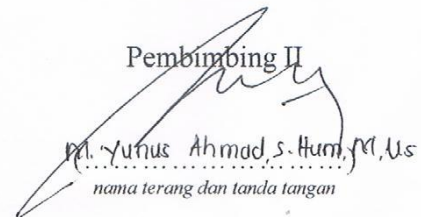 Pembimbing II
M. Yunus Ahmad, S. Hum, M, Us
nama terang dan tanda tangan